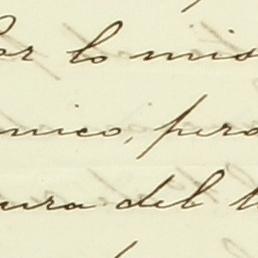 or lo mis
nico, pero
ura del t